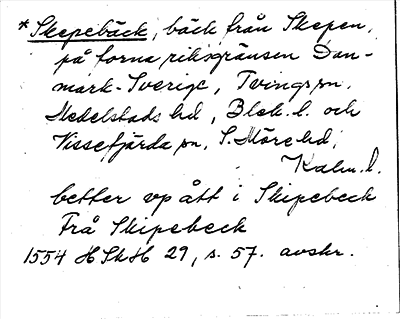 * Skepebäck, bäck från Skepen,
på forna riksgränsen Dan-
mark-Sverige, Tvings sn,
Medelstads hd, Blek. l. och
Vissefjärda sn, S. Möre hd,
Kalm. l.
better vp ått i Skipebeck
Frå Skipebeck
1554 HSkH 29, s. 57. avskr.